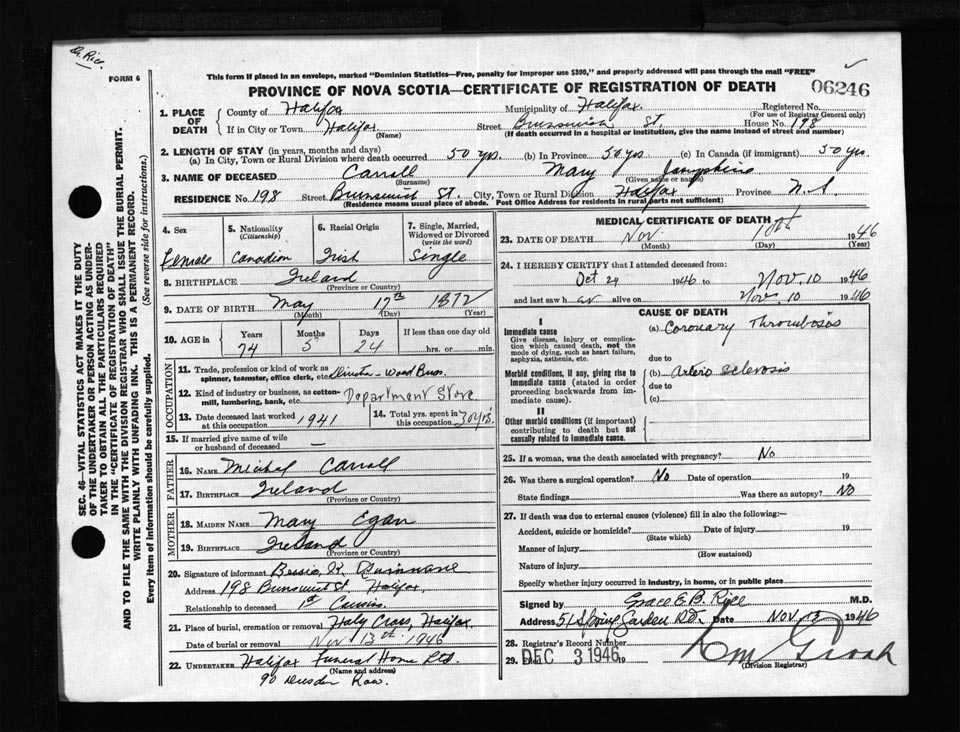 Dr. Rice.
FORM 6
This form if placed in an envelope, marked "Dominion Statistics—Free, penalty for improper use $300," and properly addressed will pass through the mail "FREE"
PROVINCE OF NOVA SCOTIA—CERTIFICATE OF REGISTRATION OF DEATH
06246
1. PLACE OF DEATH County of Halifax Municipality of Halifax. Registered No.
(For use of Registrar General only)
If in City or Town Halifax Street Brunswick St. House No. 198
(Name) (If death occurred in a hospital or institution, give the name instead of street and number)
2. LENGTH OF STAY (in years, months and days)
(a) In City, Town or Rural Division where death occurred 50 yrs. (b) In Province 50 yrs. (c) In Canada (if immigrant) 50 yrs.
3. NAME OF DECEASED Carroll Mary Josephine
(Surname) (Given name or names)
RESIDENCE No. 198 Street Brunswick St. City, Town or Rural Division Halifax Province N.S
(Residence means usual place of abode. Post Office Address for residents in rural parts not sufficient)
4. Sex
Female
5. Nationality (Citizenship)
Canadian
6. Racial Origin
Irish
7. Single, Married, Widowed or Divorced (write the word)
Single
8. BIRTHPLACE Ireland
(Province or Country)
9. DATE OF BIRTH May 17th 1872
(Month) (Day) (Year)
10. AGE in Years Months Days If less than one day old
74 5 24 hrs. or min.
OCCUPATION
11. Trade, profession or kind of work as spinner, teamster, office clerk, etc. - Wood Bros.
12. Kind of industry or business, as cotton-mill, lumbering, bank, etc. Department Store.
13. Date deceased last worked at this occupation 1941
14. Total yrs. spent in this occupation 30 yrs.
15. If married give name of wife or husband of deceased —
FATHER
16. NAME Michal Carroll
17. BIRTHPLACE Ireland
(Province or Country)
MOTHER
18. MAIDEN NAME Mary Egan
19. BIRTHPLACE Ireland
(Province or Country)
20. Signature of informant Bessie K. Quinnane
Address 198 Brunswick St. Halifax.
Relationship to deceased 1st Cousin
21. Place of burial, cremation or removal Holy Cross, Halifax.
Date of burial or removal Nov 13th 1946
22. UNDERTAKER Halifax Funeral Home Ltd.
(Name and address)
90 Dresden Row.
MEDICAL CERTIFICATE OF DEATH
23. DATE OF DEATH Nov. 10th 1946
(Month) (Day) (Year)
24. I HEREBY CERTIFY that I attended deceased from:
Oct 29 1946 to Nov. 10 1946
and last saw her alive on Nov. 10 1946
CAUSE OF DEATH
I
Immediate cause
Give disease, injury or complication which caused death, not the mode of dying, such as heart failure, asphyxia, asthenia, etc.
(a) Coronary Thrombosis
due to
Morbid conditions, if any, giving rise to immediate cause (stated in order proceeding backwards from immediate cause).
(b) Arterio sclerosis
due to
(c)
II
Other morbid conditions (if important) contributing to death but not causally related to immediate cause.
25. If a woman, was the death associated with pregnancy? No
26. Was there a surgical operation? No Date of operation 19
State findings Was there an autopsy? No
27. If death was due to external causes (violence) fill in also the following:—
Accident, suicide or homicide? Date of injury 19
(State which)
Manner of injury
(How sustained)
Nature of injury
Specify whether injury occurred in industry, in home, or in public place
Signed by Grace E. B. Rice M.D.
Address 51 Spring Garden Rd. Date Nov. 13 1946
28. Registrar's Record Number
29. Filed DEC 3 1946 19
(Division Registrar)
SEC. 46—VITAL STATISTICS ACT MAKES IT THE DUTY
OF THE UNDERTAKER OR PERSON ACTING AS UNDER-
TAKER TO OBTAIN ALL THE PARTICULARS REQUIRED
IN THE "CERTIFICATE OF REGISTRATION OF DEATH"
AND TO FILE THE SAME WITH THE DIVISION REGISTRAR WHO SHALL ISSUE THE BURIAL PERMIT.
WRITE PLAINLY WITH UNFADING INK. THIS IS A PERMANENT RECORD.
Every item of information should be carefully supplied. (See reverse side for instructions.)